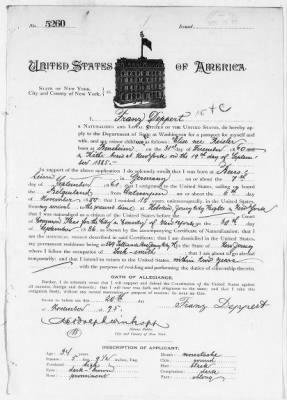 No. 5260
Issued
UNITED STATES OF AMERICA.
STATE OF NEW YORK,
City and County of New York, } ss.
I, Franz Deppert
A NATURALIZED AND LOYAL CITIZEN OF THE UNITED STATES, do hereby apply
to the Department of State at Washington for a passport for myself and
wife, and my minor children as follows: Elise nee
born at on the 30th day of November 60 and
Katie born at New York on the 19th day of Septem
ber 1885.
In support of the above application I do solemnly swear that I was born at
in Germany on or about the 7th
day of September 60, that I emigrated to the United States, sailing on board
the from on or about the day of
November 1880; that I resided years uninterruptedly, in the United
States, at Hoboken, Jersey City Heights & New York
that I was naturalized as a citizen of the United States before the
Common Pleas for the City & County of New York on the day of
September 86 as shown by the accompanying Certificate of Naturalization; that I
am the identical person described in said Certificate; that I am domiciled in the United States,
my permanent residence being at in the State of New Jersey
where I follow the occupation of Locksmith; that I am about to go abroad
temporarily; and that I intend to return to the United States within two years
with the purpose of residing and performing the duties of citizenship therein.
OATH OF ALLEGIANCE.
Further, I do solemnly swear that I will support and defend the Constitution of the United States against
all enemies, foreign and domestic; that I will bear true faith and allegiance to the same; and that I take this
obligation freely, without any mental reservation or purpose of evasion: SO HELP ME GOD.
Sworn to before me this 20th day
of November 95.
Franz Deppert
Notary Public
DESCRIPTION OF APPLICANT.
Age: 34 years
Mouth: moustache
Stature: 5 ft. 9 1/2 inches, Eng.
Chin: round
Forehead: high
Hair: black
Eyes: dark-brown
Complexion: dark
Nose: prominent
Face: oblong